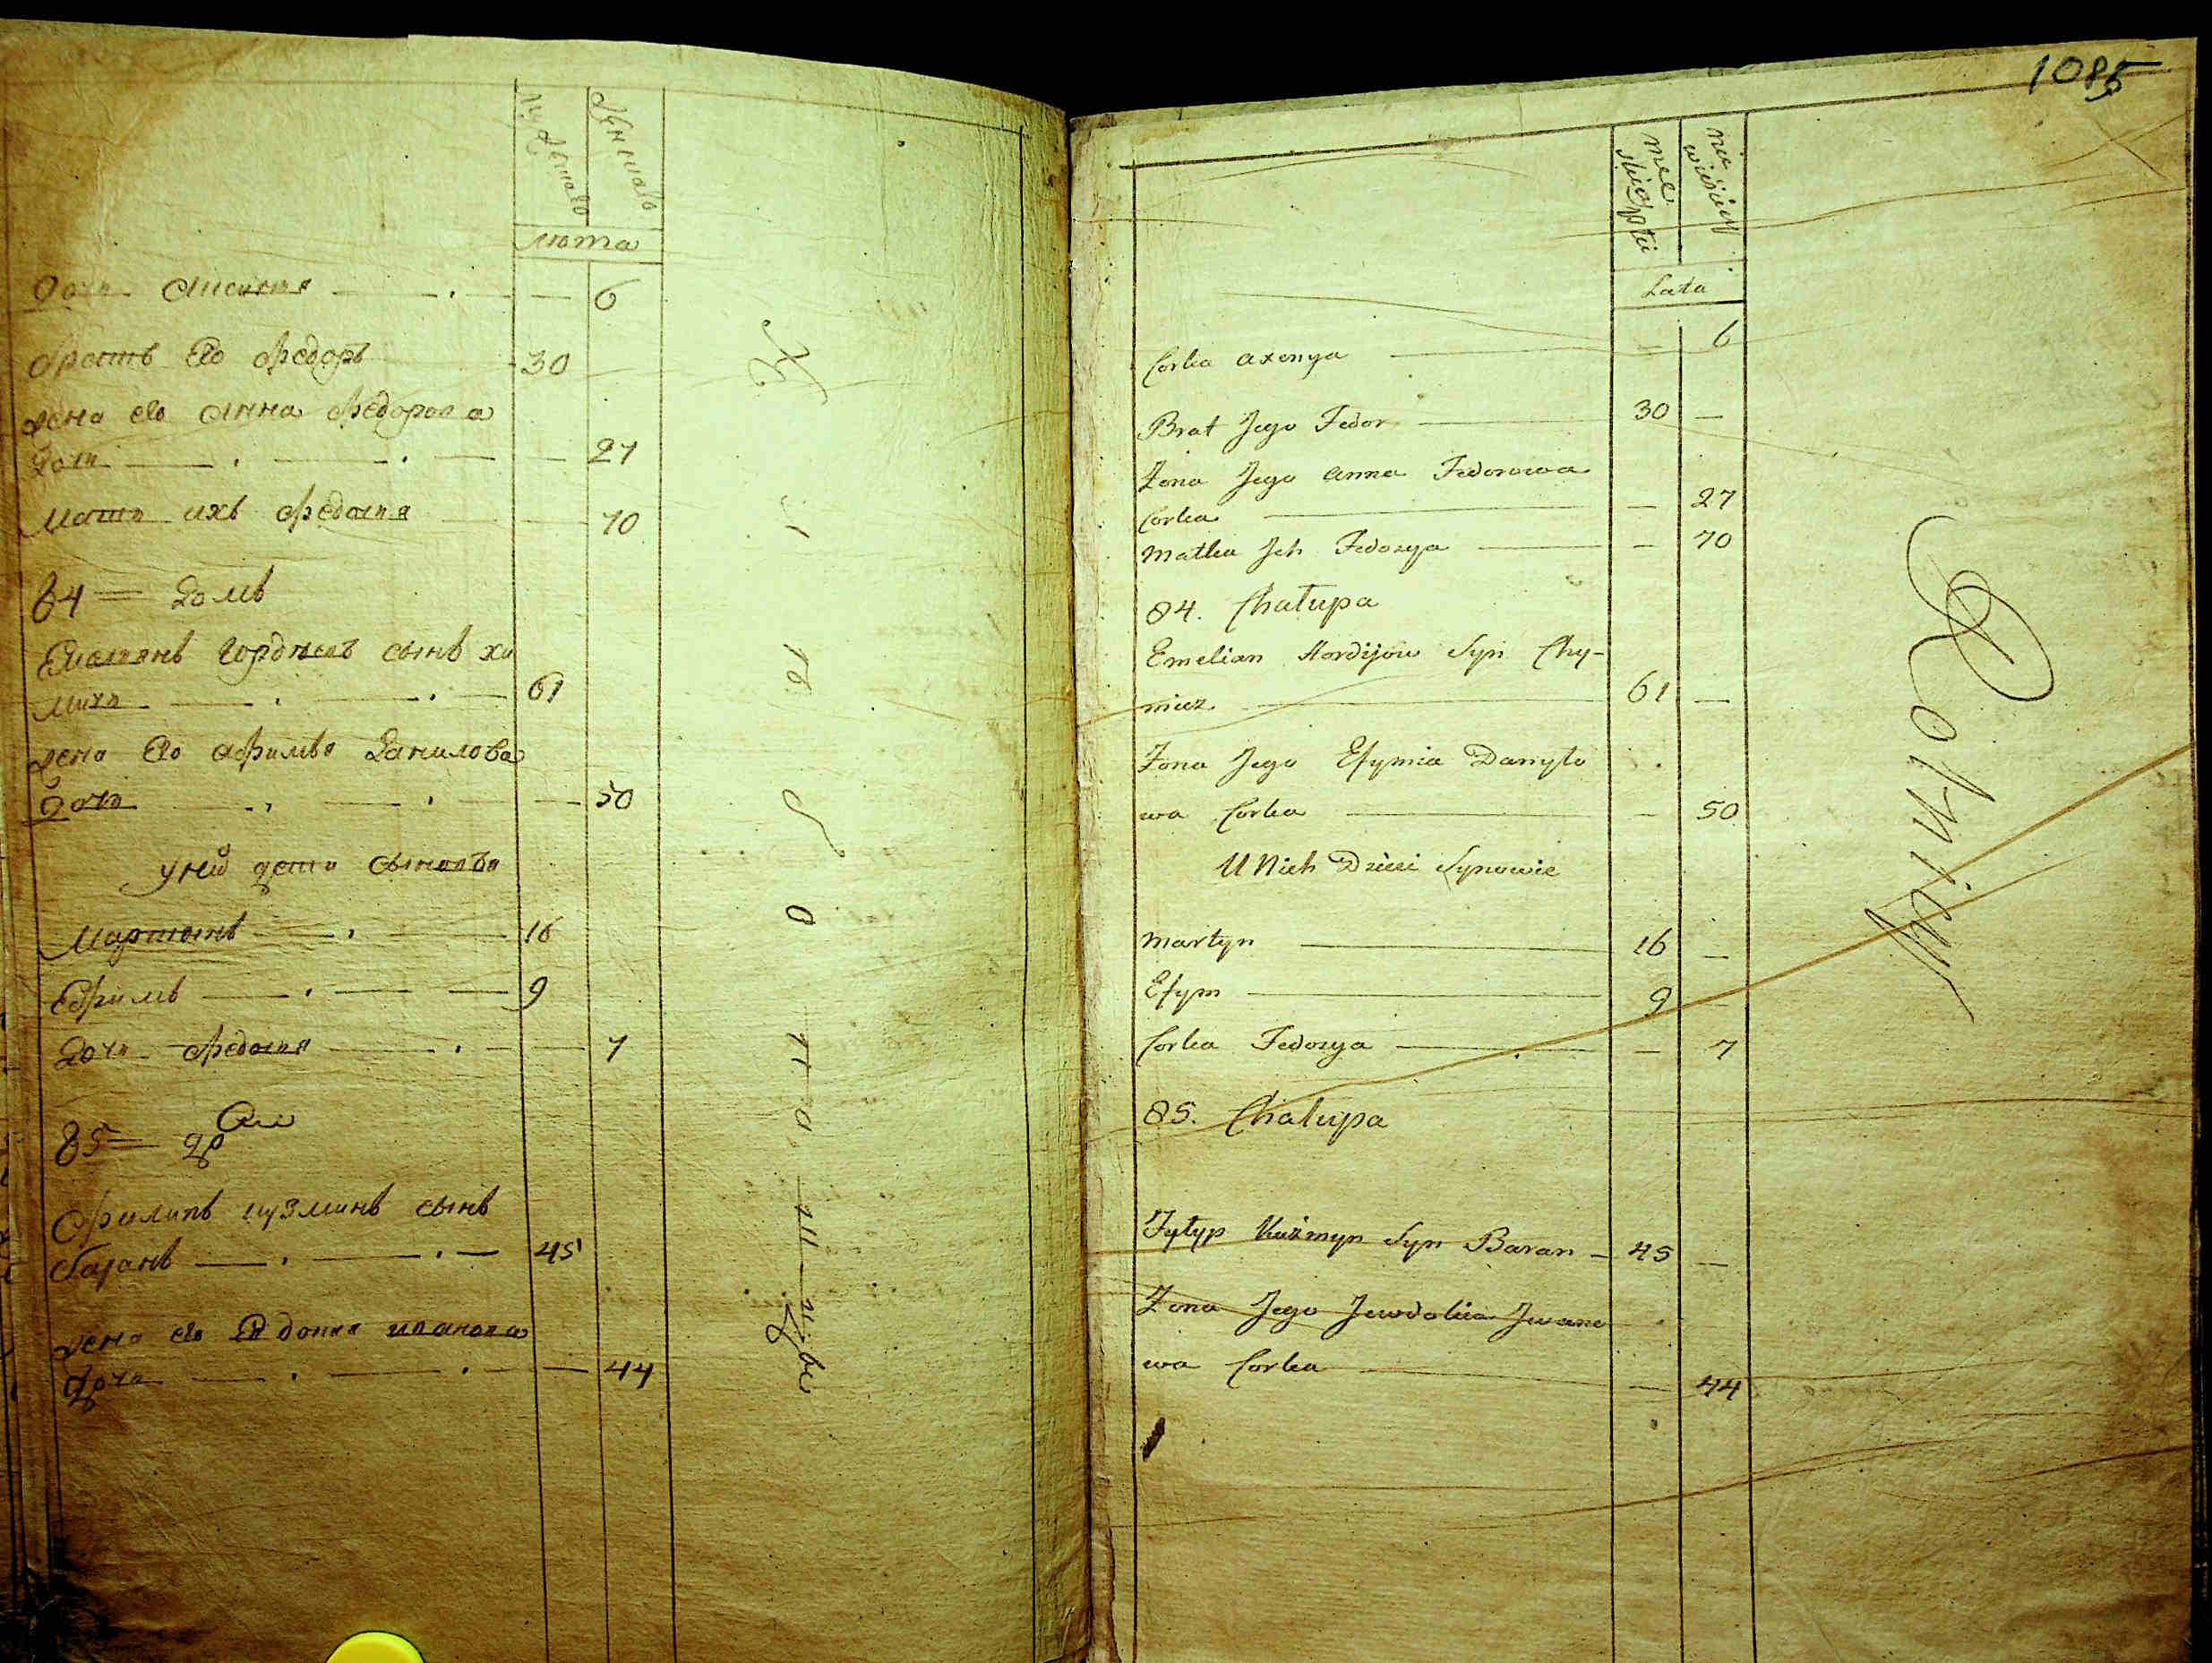 лѣта
Дочь Аксинья 6
Братъ Его Федоръ 30
жена его Анна Федорова
Дочь 27
Мать ихъ Федосья 70
84 = Домъ
Емельянъ Гордѣевъ сынъ Хи
мичъ 61
жена Его Афимья Данилова
Дочь 50
у них дети сыновья
Мартынъ 16
Ефимъ 9
Дочь Федосья 7
85 =
Филипъ Кузминъ сынъ
Баранъ 45
жена его Евдокия Иванова
дочь 44
1085
Lata
Corka Axenya — 6
Brat Jego Fedor 30 —
Żona Jego Anna Fedorowa
Corka — 27
Matka Jch Fedosya — 70
84. Chałupa
Emelian Hordijow Syn Chy-
micz 61 —
Żona Jego Efymia Danyło
wa Corka — 50
U Nich Dzieci Synowie
Martyn 16 —
Efym 9 —
Corka Fedosya — 7
85. Chałupa
Fyłyp Kuźmyn Syn Baran — 45 —
Żona Jego Jewdokia Jwano
wa Corka — 44